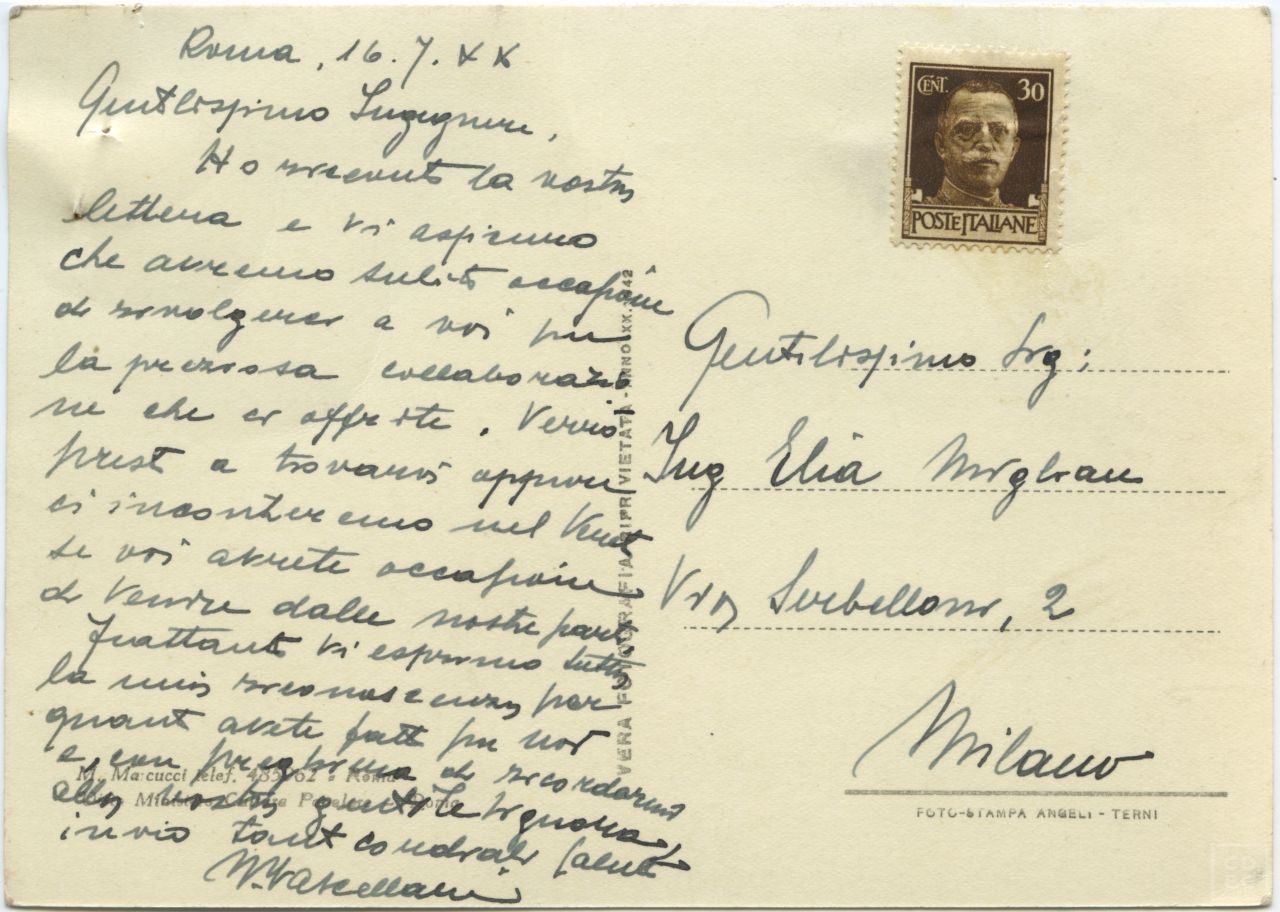 Roma, 16.7.XX
Gentilissimo Ingegnere,
Ho ricevuto la vostra
lettera e vi assicuro
che avremo subito occasione
di rivolgerci a voi per
la preziosa collaborazio
ne che ci offrite. Verrò
presto a trovarvi oppure
ci incontreremo nel Veneto
se voi avrete occasione
di venire dalle nostre parti.
Frattanto vi esprimo tutta
la mia riconoscenza per
quanto avete fatto per noi
e, con preghiera di ricordarmi
alla vostra gentile Signora,
invio tanti cordiali saluti
CENT. 30
POSTE ITALIANE
Gentilissimo Sig:
Ing Elia
Via Serbelloni, 2
Milano
FOTO-STAMPA ANGELI - TERNI
VERA FOTOGRAFIA RIPR. VIETATA - ANNO XX.
M. Marcucci telef. - Roma